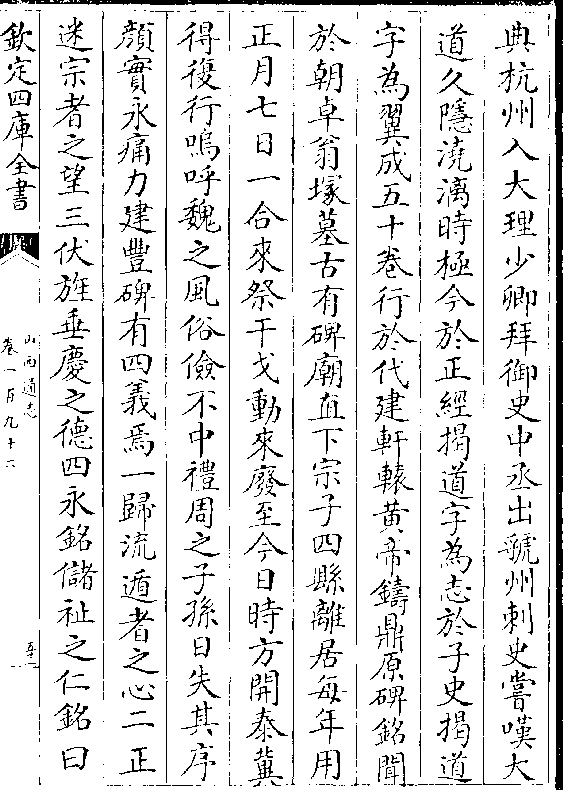 典杭州入大理少卿拜御史中丞出虢州刺史嘗嘆大
道久隱澆漓時極今於正經揭道字為志於子史揭道
字為翼成五十卷行於代建軒轅黃帝鑄鼎原碑銘聞
於朝卓翁塚墓古有碑廟直下宗子四縣離居每年用
正月七日一合來祭干戈動來廢至今日時方開泰冀
得復行嗚呼魏之風俗儉不中禮周之子孫日失其序
顔實永痛力建豐碑有四義焉一歸流遁者之心二正
迷宗者之望三伏旌垂慶之德四永銘儲祉之仁銘曰
欽定四庫全書
山西通志
卷一百九十六